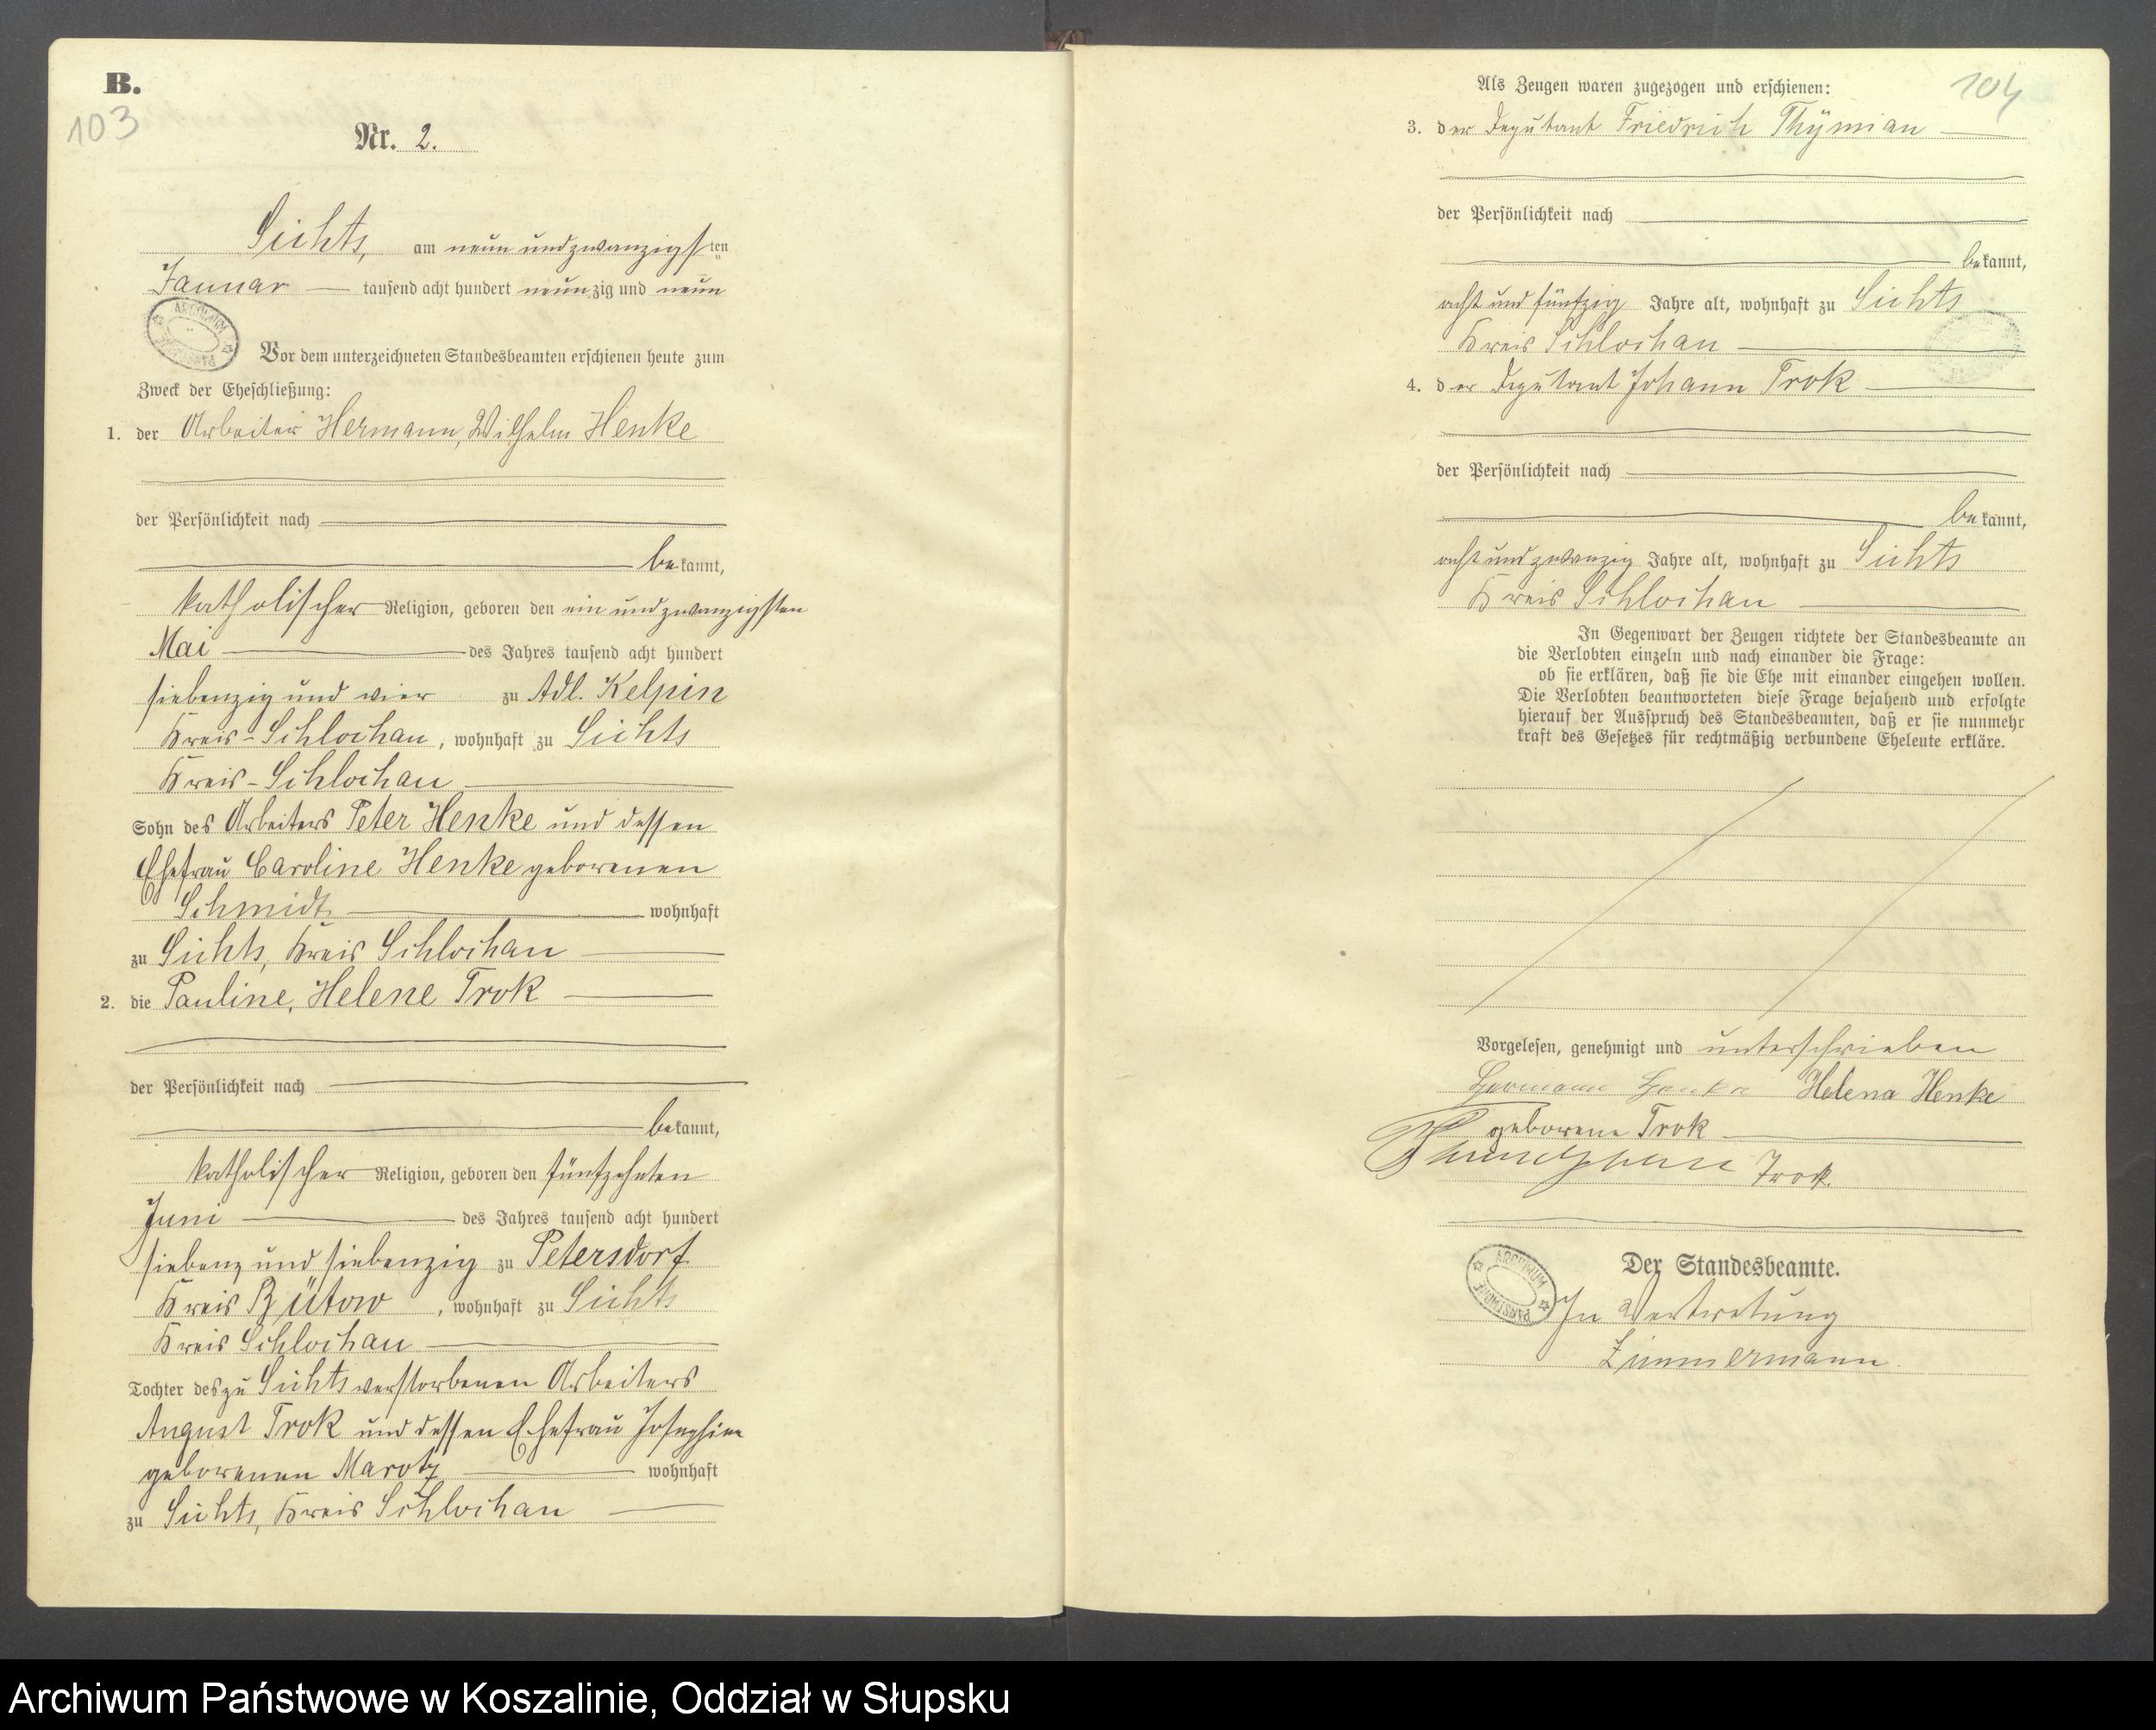 B.
103
Nr. 2.
Sichts, am neun und zwanzigsten
Januar tausend acht hundert neunzig und neun
Vor dem unterzeichneten Standesbeamten erschienen heute zum
Zweck der Eheschließung:
1. der Arbeiter Hermann, Wilhelm Henke
der Persönlichkeit nach
bekannt,
katholischer Religion, geboren den ein und zwanzigsten
Mai des Jahres tausend acht hundert
siebenzig und vier zu Adl. Kelpin
Kreis-Schlochau, wohnhaft zu Sichts
Kreis-Schlochau
Sohn des Arbeiters Peter Henke und dessen
Ehefrau Caroline Henke geborenen
Schmidt wohnhaft
zu Sichts, Kreis Schlochau
2. die Pauline, Helene Trok
der Persönlichkeit nach
bekannt,
katholischer Religion, geboren den fünfzehnten
Juni des Jahres tausend acht hundert
sieben und siebenzig zu Petersdorf
Kreis Bütow, wohnhaft zu Sichts
Kreis Schlochau
Tochter des zu Sichts verstorbenen Arbeiters
August Trok und dessen Ehefrau Josephine
geborenen Marotz wohnhaft
zu Sichts, Kreis Schlochau
104
Als Zeugen waren zugezogen und erschienen:
3. der Deputant Friedrich Thymian
der Persönlichkeit nach
bekannt,
acht und fünfzig Jahre alt, wohnhaft zu Sichts
Kreis Schlochau
4. der Deputant Johann Trok
der Persönlichkeit nach
bekannt,
acht und zwanzig Jahre alt, wohnhaft zu Sichts
Kreis Schlochau
In Gegenwart der Zeugen richtete der Standesbeamte an
die Verlobten einzeln und nach einander die Frage:
ob sie erklären, daß sie die Ehe mit einander eingehen wollen.
Die Verlobten beantworteten diese Frage bejahend und erfolgte
hierauf der Ausspruch des Standesbeamten, daß er sie nunmehr
kraft des Gesetzes für rechtmäßig verbundene Eheleute erkläre.
Vorgelesen, genehmigt und unterschrieben
Hermann Henke Helena Henke
geborene Trok
Trok.
Der Standesbeamte.
In Vertretung
Zimmermann.
Archiwum Państwowe w Koszalinie, Oddział w Słupsku